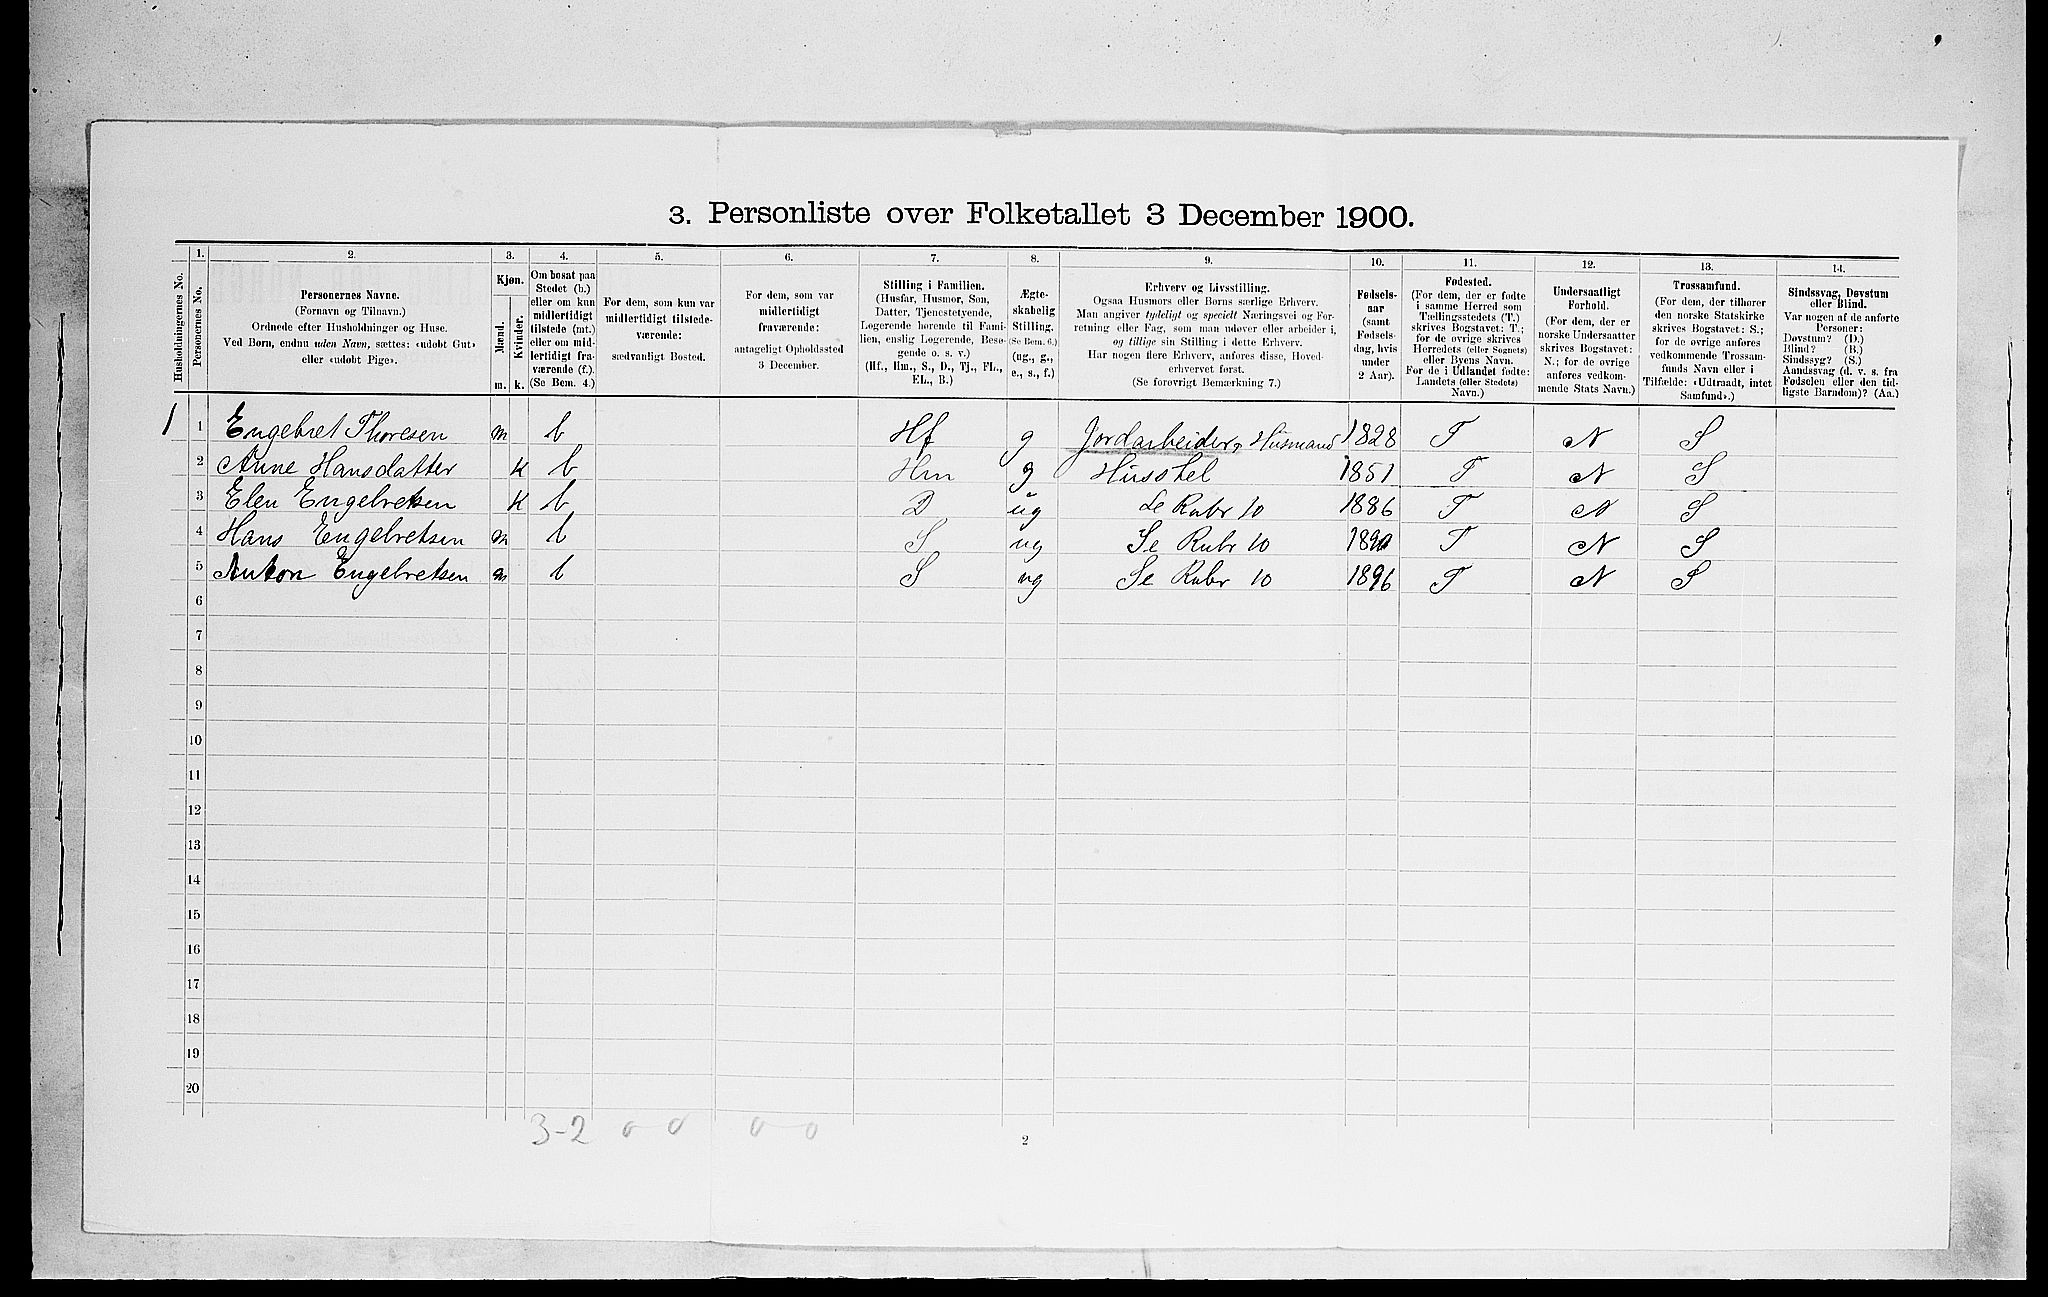 3. Personliste over Folketallet 3 December 1900.
Husholdningernes No.
1.
Personernes No.
2.
Personernes Navne.
(Fornavn og Tilnavn.)
Ordnede efter Husholdninger og Huse.
Ved Børn, endnu uden Navn, sættes: «udøbt Gut»
eller «udøbt Pige».
3.
Kjøn.
Mænd.
Kvinder.
m. k.
4.
Om bosat paa
Stedet (b.)
eller om kun
midlertidigt
tilstede (mt.)
eller om mid-
lertidigt fra-
værende (f.).
(Se Bem. 4.)
5.
For dem, som kun var
midlertidigt tilstede-
værende:
sædvanligt Bosted.
6.
For dem, som var
midlertidigt
fraværende:
antageligt Opholdssted
3 December.
7.
Stilling i Familien.
(Husfar, Husmor, Søn,
Datter, Tjenestetyende,
Logerende hørende til Fami-
lien, enslig Logerende, Besø-
gende o. s. v.)
(Hf., Hm., S., D., Tj., FL.,
EL., B.)
8.
Ægte-
skabelig
Stilling.
(Se Bem. 6.)
(ug., g.,
e., s., f.)
9.
Erhverv og Livsstilling.
Ogsaa Husmors eller Børns særlige Erhverv.
Man angiver tydeligt og specielt Næringsvei og For-
retning eller Fag, som man udøver eller arbeider i,
og tillige sin Stilling i dette Erhverv.
Har nogen flere Erhverv, anføres disse, Hoved-
erhvervet først.
(Se forøvrigt Bemærkning 7.)
10.
Fødsels-
aar
(samt
Fødsels-
dag, hvis
under
2 Aar).
11.
Fødested.
(For dem, der er fødte
i samme Herred som
Tællingsstedets (T.)
skrives Bogstavet: T.;
for de øvrige skrives
Herredets (eller Sognets)
eller Byens Navn.
For de i Udlandet fødte:
Landets (eller Stedets)
Navn.)
12.
Undersaatligt
Forhold.
(For dem, der er
norske Undersaatter
skrives Bogstavet:
N.; for de øvrige
anføres vedkom-
mende Stats Navn.)
13.
Trossamfund.
(For dem, der tilhører
den norske Statskirke
skrives Bogstavet: S.;
for de øvrige anføres
vedkommende Trossam-
funds Navn eller i
Tilfælde: «Udtraadt, intet
Samfund».)
14.
Sindssvag, Døvstum
eller Blind.
Var nogen af de anførte
Personer:
Døvstum? (D.)
Blind? (B.)
Sindssyg? (S.)
Aandssvag (d. v. s. fra
Fødselen eller den tid-
ligste Barndom)? (Aa.)
1 1 Engebret Thoresen m b Hf g Jordarbeider, Husmand 1828 T N S
2 Anne Hansdatter K b Hm g Husstel 1851 T N S
3 Elen Engebretsen K b D ug Se Rubr 10 1886 T N S
4 Hans Engebretsen m b S ug Se Rubr 10 1890 T N S
5 Anton Engebretsen m b S ug Se Rubr 10 1896 T N S
6
7
8
9
10
11
12
13
14
15
16
17
18
19
20
3-2 0 0 0 0
2